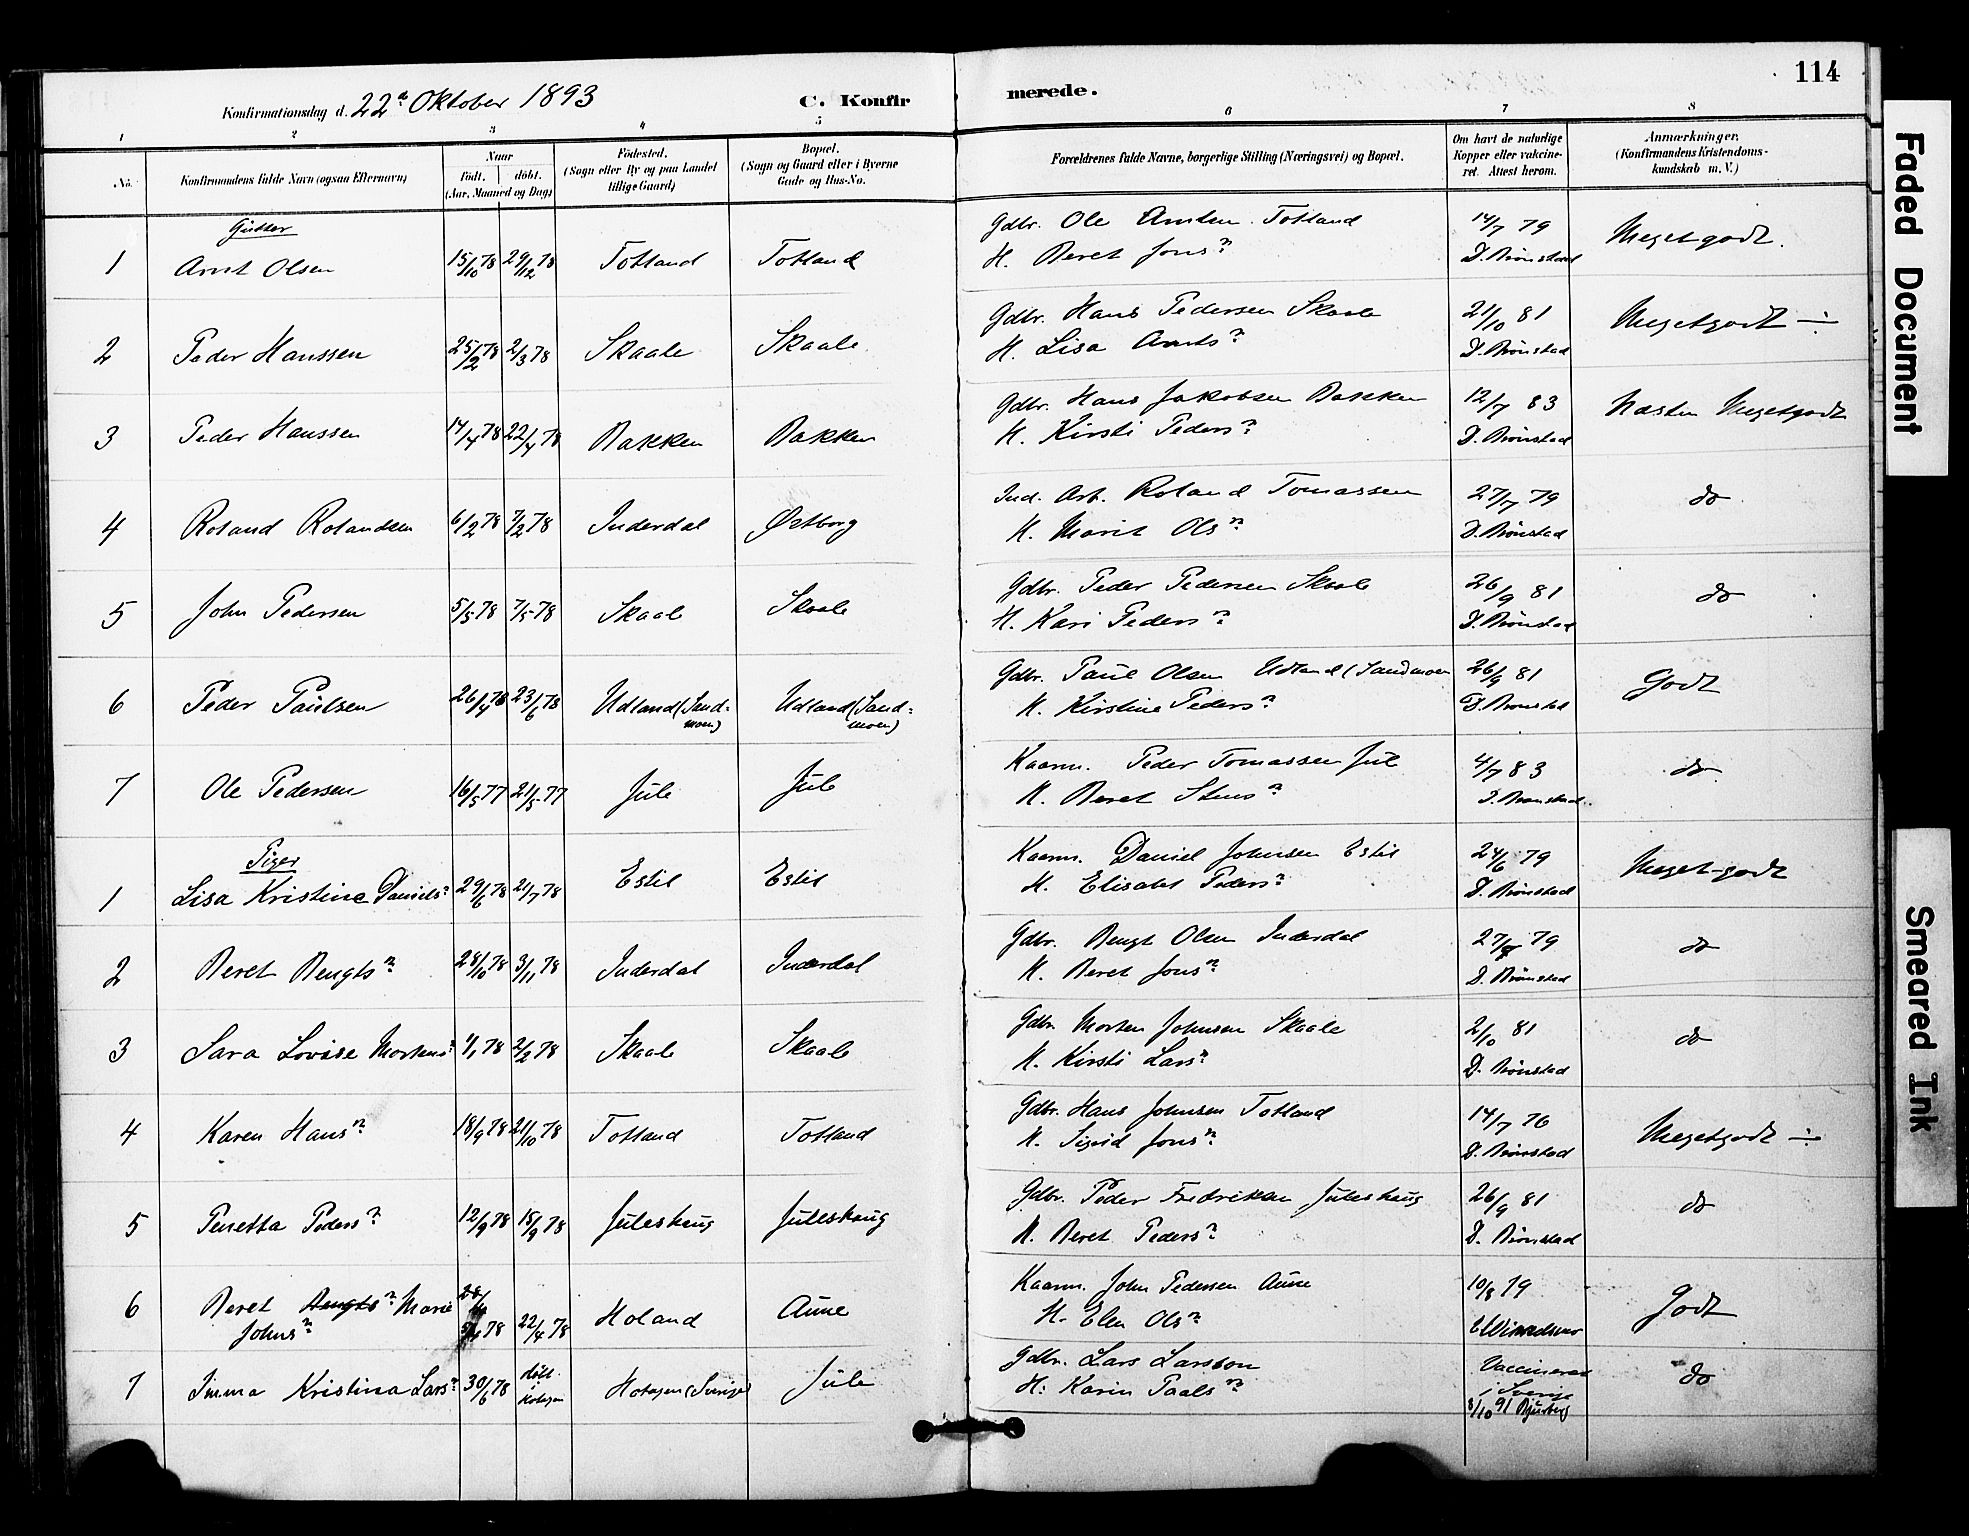 114
Konfirmationsdag d. 22de Oktober 1893
C. Konfirmerede.
1 2 3 4 5 6 7 8
No.
Konfirmandens fulde Navn (ogsaa Efternavn)
Naar
født. døbt.
(Aar, Maaned og Dag)
Fødested.
(Sogn eller By og paa Landet
tillige Gaard)
Bopæl.
(Sogn og Gaard eller i Byerne
Gade og Hus-No.
Forældrenes fulde Navne, borgerlige Stilling (Næringsvei) og Bopæl.
Om havt de naturlige
Kopper eller vakcine-
ret. Attest herom.
Anmærkninger.
(Konfirmandens Kristendoms-
kundskab m. V.)
Gutter
1 Arnt Olsen 15/10 78 29/12 78 Totland Totland Gdbr. Ole Arntsen Totland 14/7 79 Meget godt.
H. Beret Jons n D. Brønstad
2 Peder Hanssen 25/2 78 2/3 78 Skaale Skaale Gdbr. Hans Pedersen Skaale 21/10 81 Megetgodt ÷
H. Lisa Arnts n D. Brønstad
3 Peder Hanssen 14/4 78 22/4 78 Bakken Bakken Gdbr. Hans Jakobsen Bakken 12/7 83 Næsten Megetgodt
H. Kirsti Peders n D. Brønstad
4 Roland Rolandsen 6/2 78 7/2 78 Inderdal Østborg Ind. Arb. Roland Tomassen 27/7 79 do
H. Marit Ols n D. Brønstad
5 John Pedersen 5/5 78 7/5 78 Skaale Skaale Gdbr. Peder Pedersen Skaale 26/9 81 do
H. Kari Peders n D. Brønstad
6 Peder Paulsen 26/4 78 23/6 78 Udland (Sand= Udland (Sand= Gdbr. Paul Olsen Udland (Sandmoen 26/9 81 Godt
moen) moen) H. Kirstine Peders n D. Brønstad
7 Ole Pedersen 16/5 77 21/5 77 Jule Jule Kaarm. Peder Tomassen Jule 4/7 83 do
H. Beret Stens n D. Brønstad
Piger
1 Lisa Kristine Daniels n 29/6 78 21/7 78 Estil Estil Kaarm. Daniel Johnsen Estil 24/6 79 Meget-godt
H. Elisabet Peders n D. Brønstad
2 Beret Bengts n 28/10 78 3/11 78 Inderdal Inderdal Gdbr. Bengt Olsen Inderdal 27/7 79 do
H. Beret Jons n D. Brønstad
3 Sara Lovise Mortens n 4/1 78 2/2 78 Skaale Skaale Gdbr. Morten Johnsen Skaale 2/10 81 do
H. Kirsti Lars n D. Brønstad
4 Karen Hans n 18/9 78 21/10 78 Totland Totland Gdbr. Hans Johnsen Totland 14/7 76 Megetgodt ÷
H. Sigrid Jons n D. Brønstad
5 Peretta Peders n 12/9 78 15/9 78 Juleshaug Juleshaug Gdbr. Peder Fredriksen Juleshaug 26/9 81 do
H. Beret Peders n D. Brønstad
6 Beret Bengts n Marie 78 22/4 78 Holand Aune Kaarm. John Pedersen Aune 10/8 79 Godt
Johns n H. Elen Ols n
7 Imma Kristina Lars n 30/6 78 døbt i Hotagen Hotagen (Sverige Jule Gdbr. Lars Larsson Vaccineret do
H: Karin Paals n i Sverige
8/10 91
Faded Document
Smeared Ink